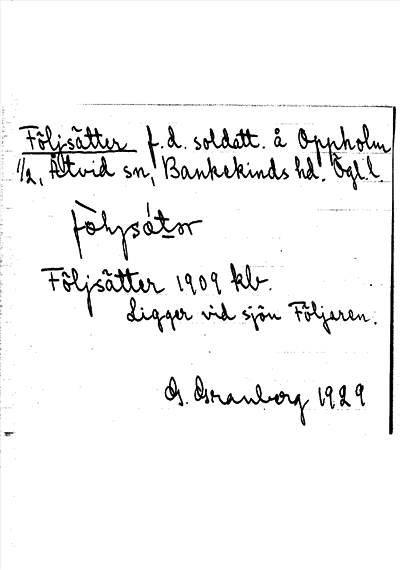 Följsätter f.d. soldatt. å Oppholm
1/2, Åtvid sn, Bankekinds hd. Ögl.l
Följsätter 1909 kb.
Ligger vid sjön Följaren.
G. Granberg 1929